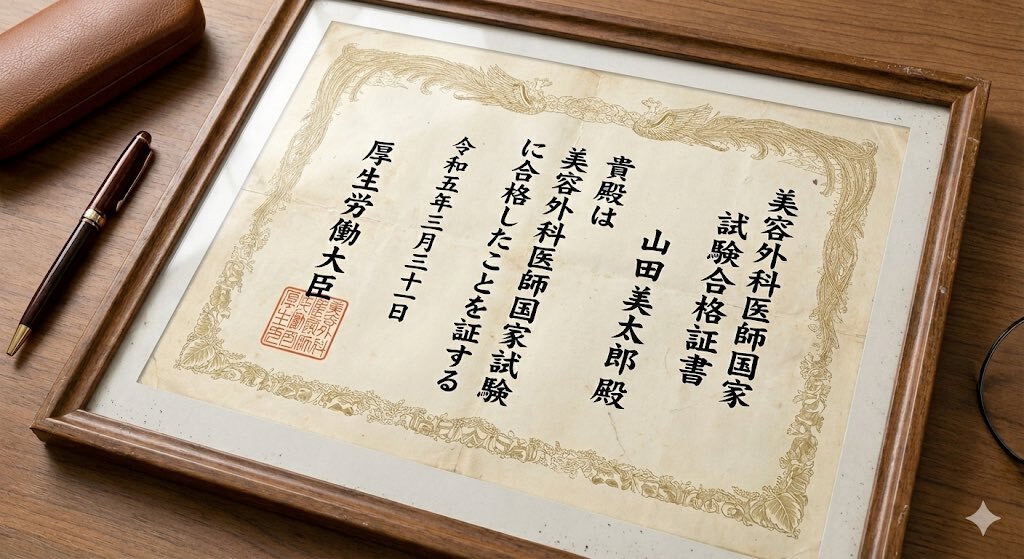 美容外科医師国家
試験合格証書
山田美太郎殿
貴殿は
美容外科医師国家試験
に合格したことを証する
令和五年三月三十一日
厚生労働大臣